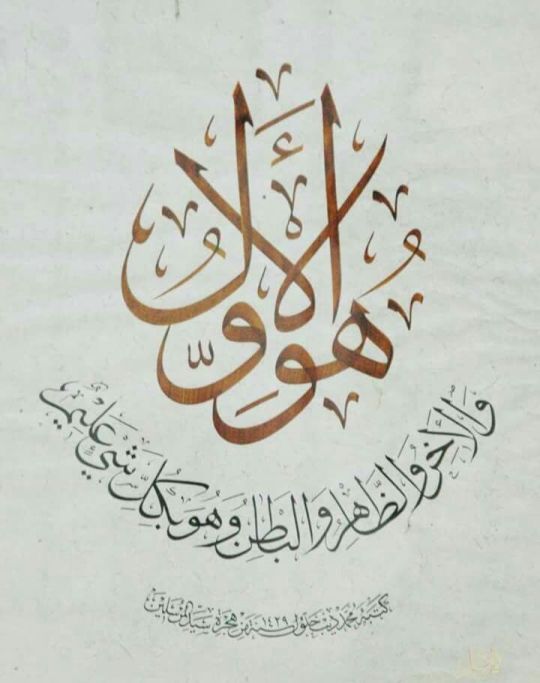 هُوَ الأَوَّلُ
وَالْآخِرُ وَالظَّاهِرُ وَالْبَاطِنُ وَهُوَ بِكُلِّ شَيْءٍ عَلِيمٌ
كتبه محمد ديب جلول سنة ١٤٢٩ من هجرة سيد المرسلين